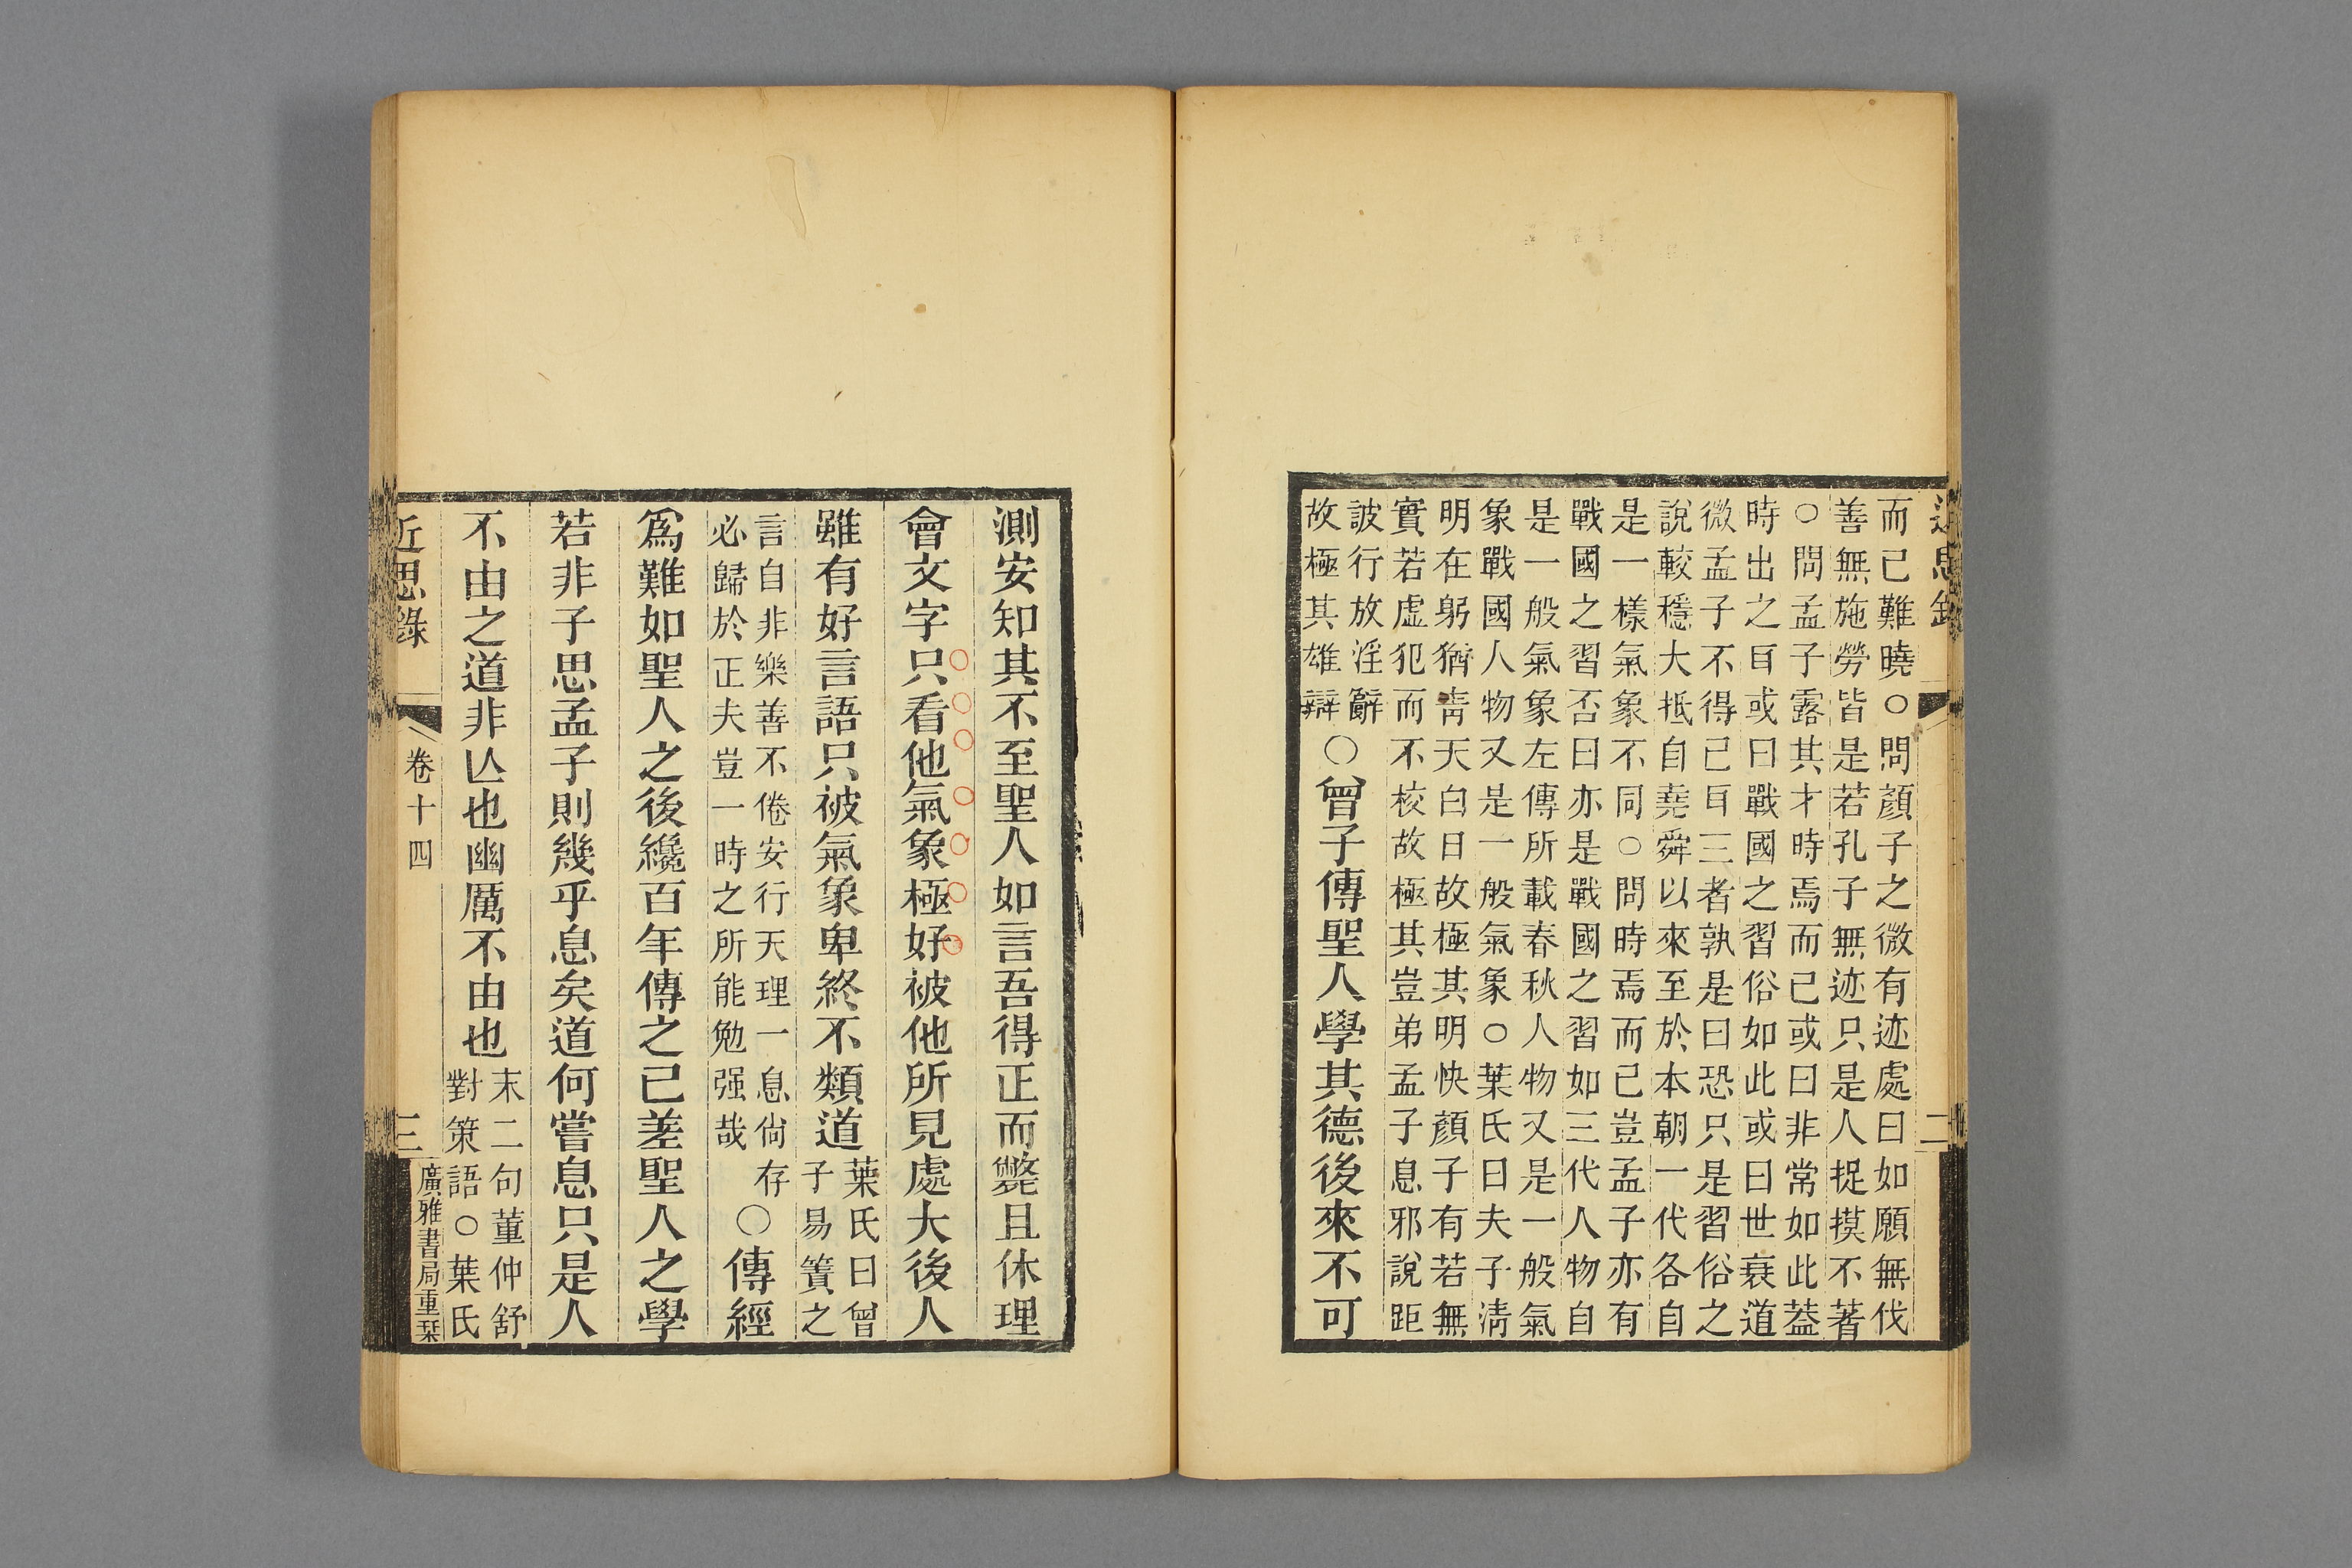 近思錄
二
而已難曉○問顏子之微有迹處曰如願無伐
善無施勞皆是若孔子無迹只是人捉摸不著
○問孟子露其才時焉而已或曰非常如此蓋
時出之耳或曰戰國之習俗如此或曰世衰道
微孟子不得已耳三者孰是曰恐只是習俗之
說較穩大抵自堯舜以來至於本朝一代各自
是一樣氣象不同○問時焉而已豈孟子亦有
戰國之習否曰亦是戰國之習如三代人物自
是一般氣象左傳所載春秋人物又是一般氣
象戰國人物又是一般氣象○葉氏曰夫子淸
明在躬猶靑天白日故極其明快顏子有若無
實若虛犯而不校故極其豈弟孟子息邪說距
詖行放淫辭
故極其雄辯
○曾子傳聖人學其德後來不可
測安知其不至聖人如言吾得正而斃且休理
會文字只看他氣象極好被他所見處大後人
雖有好言語只被氣象卑終不類道
葉氏曰曾
子易簀之
言自非樂善不倦安行天理一息尙存
必歸於正夫豈一時之所能勉强哉
○傳經
爲難如聖人之後纔百年傳之已差聖人之學
若非子思孟子則幾乎息矣道何嘗息只是人
不由之道非亾也幽厲不由也
末二句董仲舒
對策語○葉氏
近思錄
卷十四
三
廣雅書局重栞